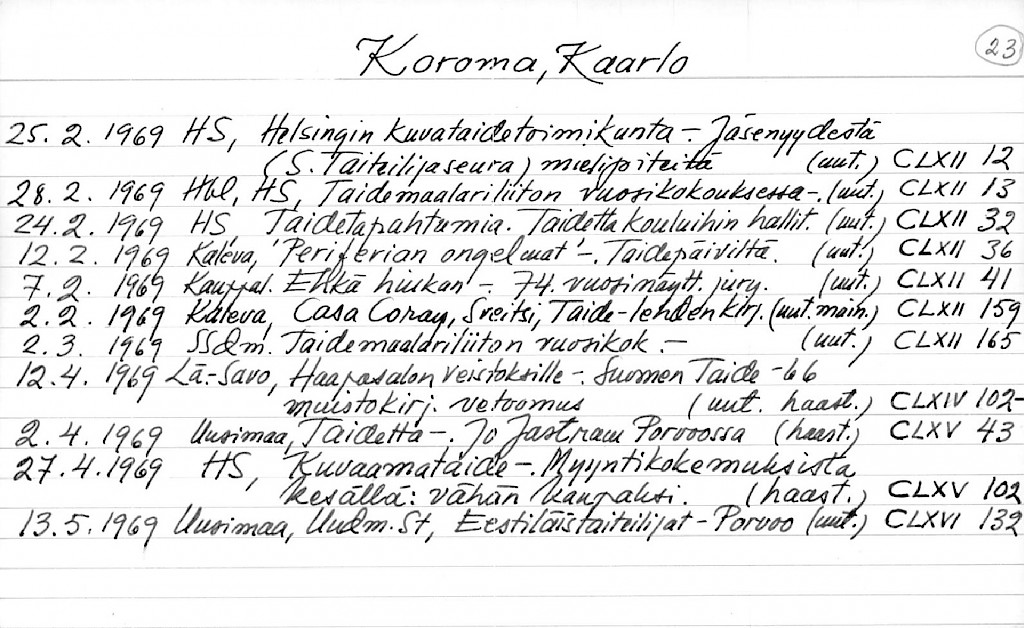 Koroma, Kaarlo 23
25.2. 1969 HS, Helsingin kuvataidetoimikunta -. Jäsenyydestä
(S. Taiteilijaseura) mielipiteitä (uut.) CLXII 12
28.2. 1969 Hbl, HS, Taidemaalariliiton vuosikokouksessa -. (uut.) CLXII 13
24.2. 1969 HS Taidetapahtumia. Taidetta kouluihin hallit. (uut.) CLXII 32
12.2. 1969 Kaleva, 'Periferian ongelmat' -. Taidepäiviltä. (uut.) CLXII 36
7.2. 1969 Kauppal. Ehkä hiukan -. 74. vuosinäytt. jury. (uut.) CLXII 41
2.2. 1969 Kaleva, Casa Coray, Sveitsi, Taide-lehden kirj. (uut. main.) CLXII 159
2.3. 1969 SSdm. Taidemaalariliiton vuosikok. - (uut.) CLXII 165
12.4. 1969 Lä.-Savo, Haapasalon veistoksille -. Suomen Taide -66
muistokirj. vetoomus (uut. haast.) CLXIV 102-
2.4. 1969 Uusimaa, Taidetta -. Jo Jastram Porvoossa (haast.) CLXV 43
27.4.1969 HS, Kuvaamataide -. Myyntikokemuksista
kesällä: vähän kaupaksi. (haast.) CLXV 102
13.5.1969 Uusimaa, Uudm. St, Eestiläistaiteilijat - Porvoo (uut.) CLXVI 132